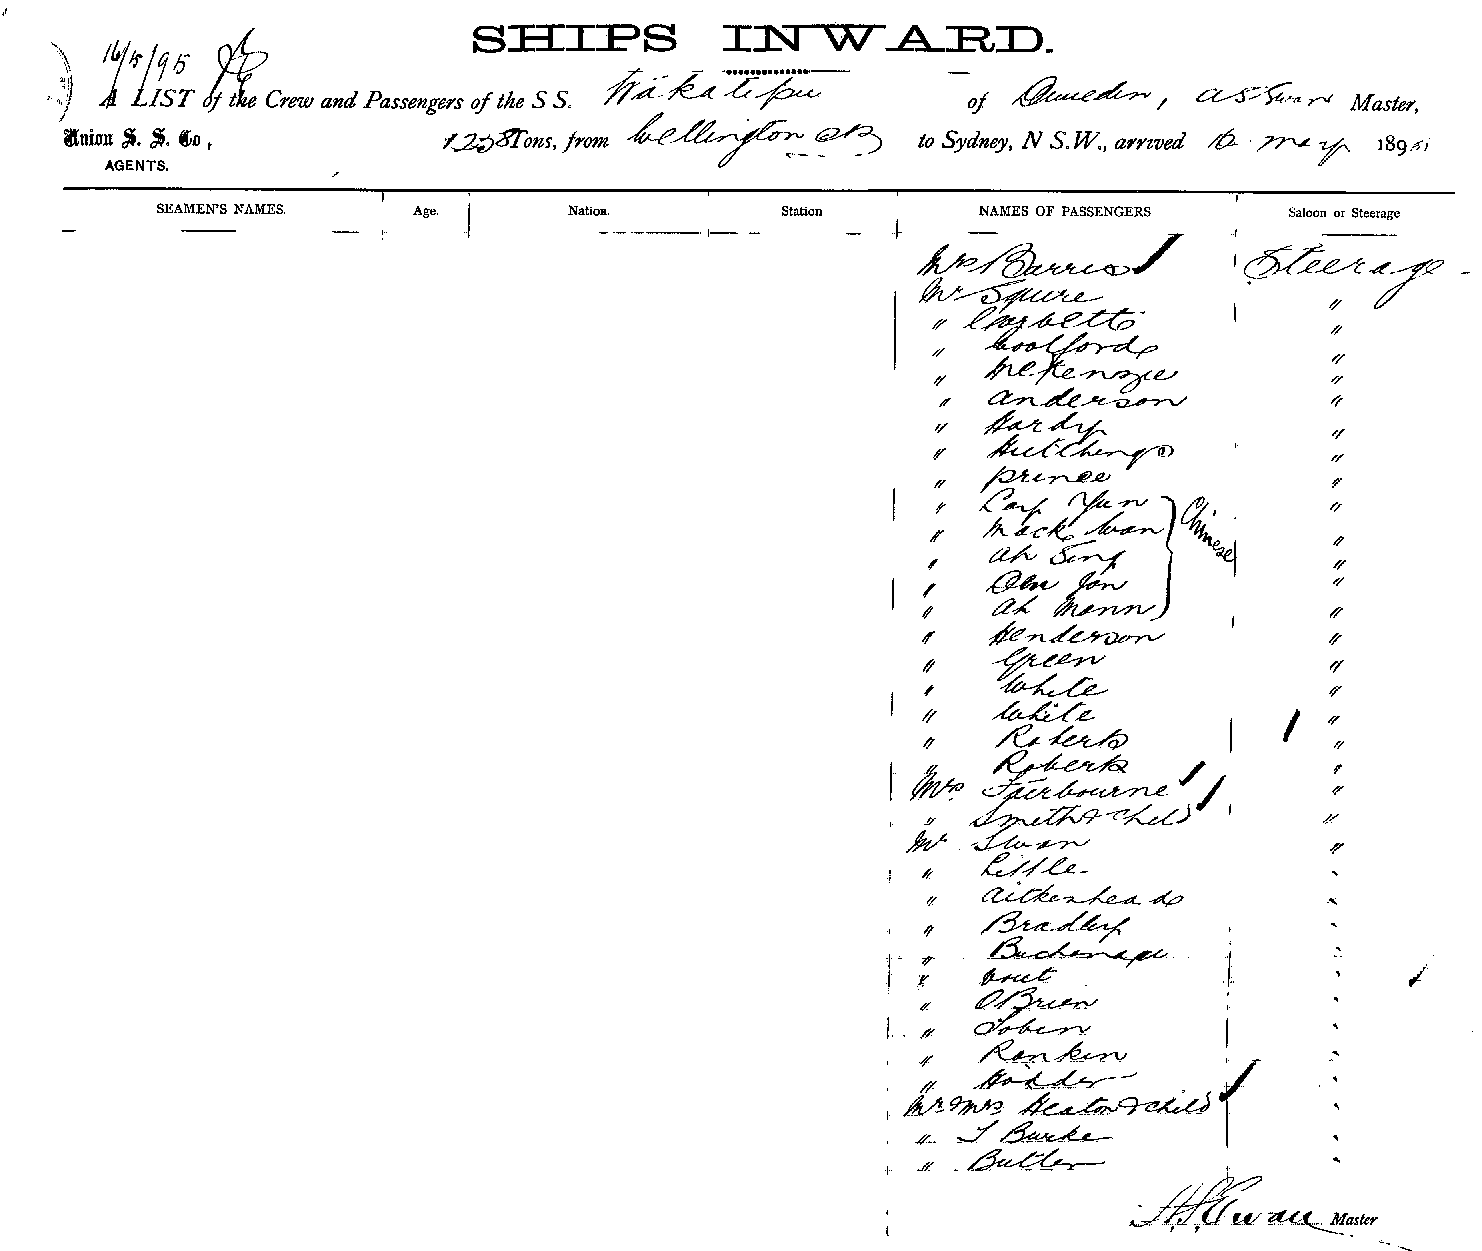 SHIPS INWARD.
16/5/95
A LIST of the Crew and Passengers of the S S. Wakatipu of Dunedin, A S Swan Master,
Union S. S. Co, 1258 Tons, from Wellington to Sydney, N S.W., arrived 16 May 1895
AGENTS.
SEAMEN'S NAMES. Age. Nation. Station NAMES OF PASSENGERS Saloon or Steerage
Mrs Barrie Steerage
Mr Squire "
" Corbett "
" Woolford "
" McKenzie "
" Anderson "
" Hardy "
" Hutchings "
" Prince "
" Yun "
" Mack Wan "
" Ah Sing "
" Jan "
" Ah Mann "
Chinese
" Henderson "
" Green "
" White "
" White "
" Roberts "
" Roberts "
Mrs. Fairbourne "
" Smith & Child "
Mr Swan "
" Little "
" Aitkenhead "
" Bradley "
" "
" "
" O'Brien "
" Tobin "
" Rankin "
" Hodder "
Mr & Mrs Heaton & child "
" T Burke "
" Butler "
A. S. Swan Master